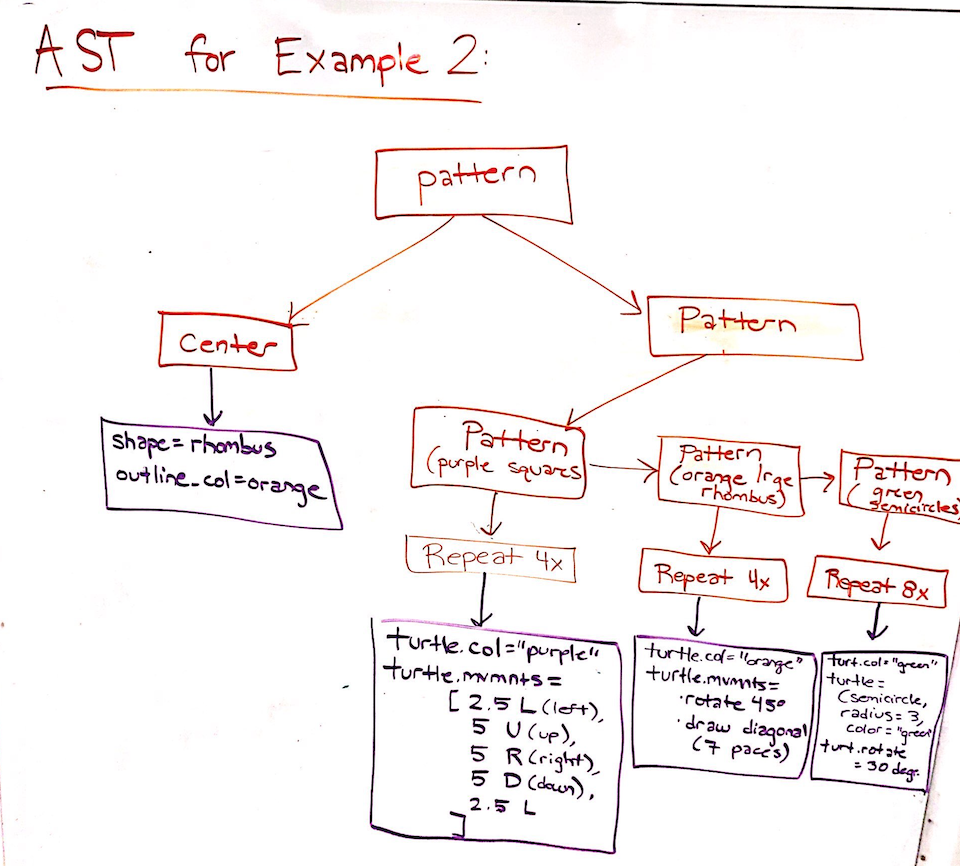 AST for Example 2:
pattern
Center
Pattern
shape=rhombus
outline_col=orange
Pattern
(purple squares
Pattern
(orange lrge
rhombus)
Pattern
(green
semicircles)
Repeat 4x
Repeat 4x
Repeat 8x
turtle.col="purple"
turtle.mvmnts=
[ 2.5 L (left),
5 U (up),
5 R (right),
5 D (down),
2.5 L
]
turtle.col="orange"
turtle.mvmnts=
·rotate 45°
·draw diagonal
(7 paces)
turt.col="green"
turtle=
(semicircle,
radius=3,
color="green"
turt.rotate
=30 degr.